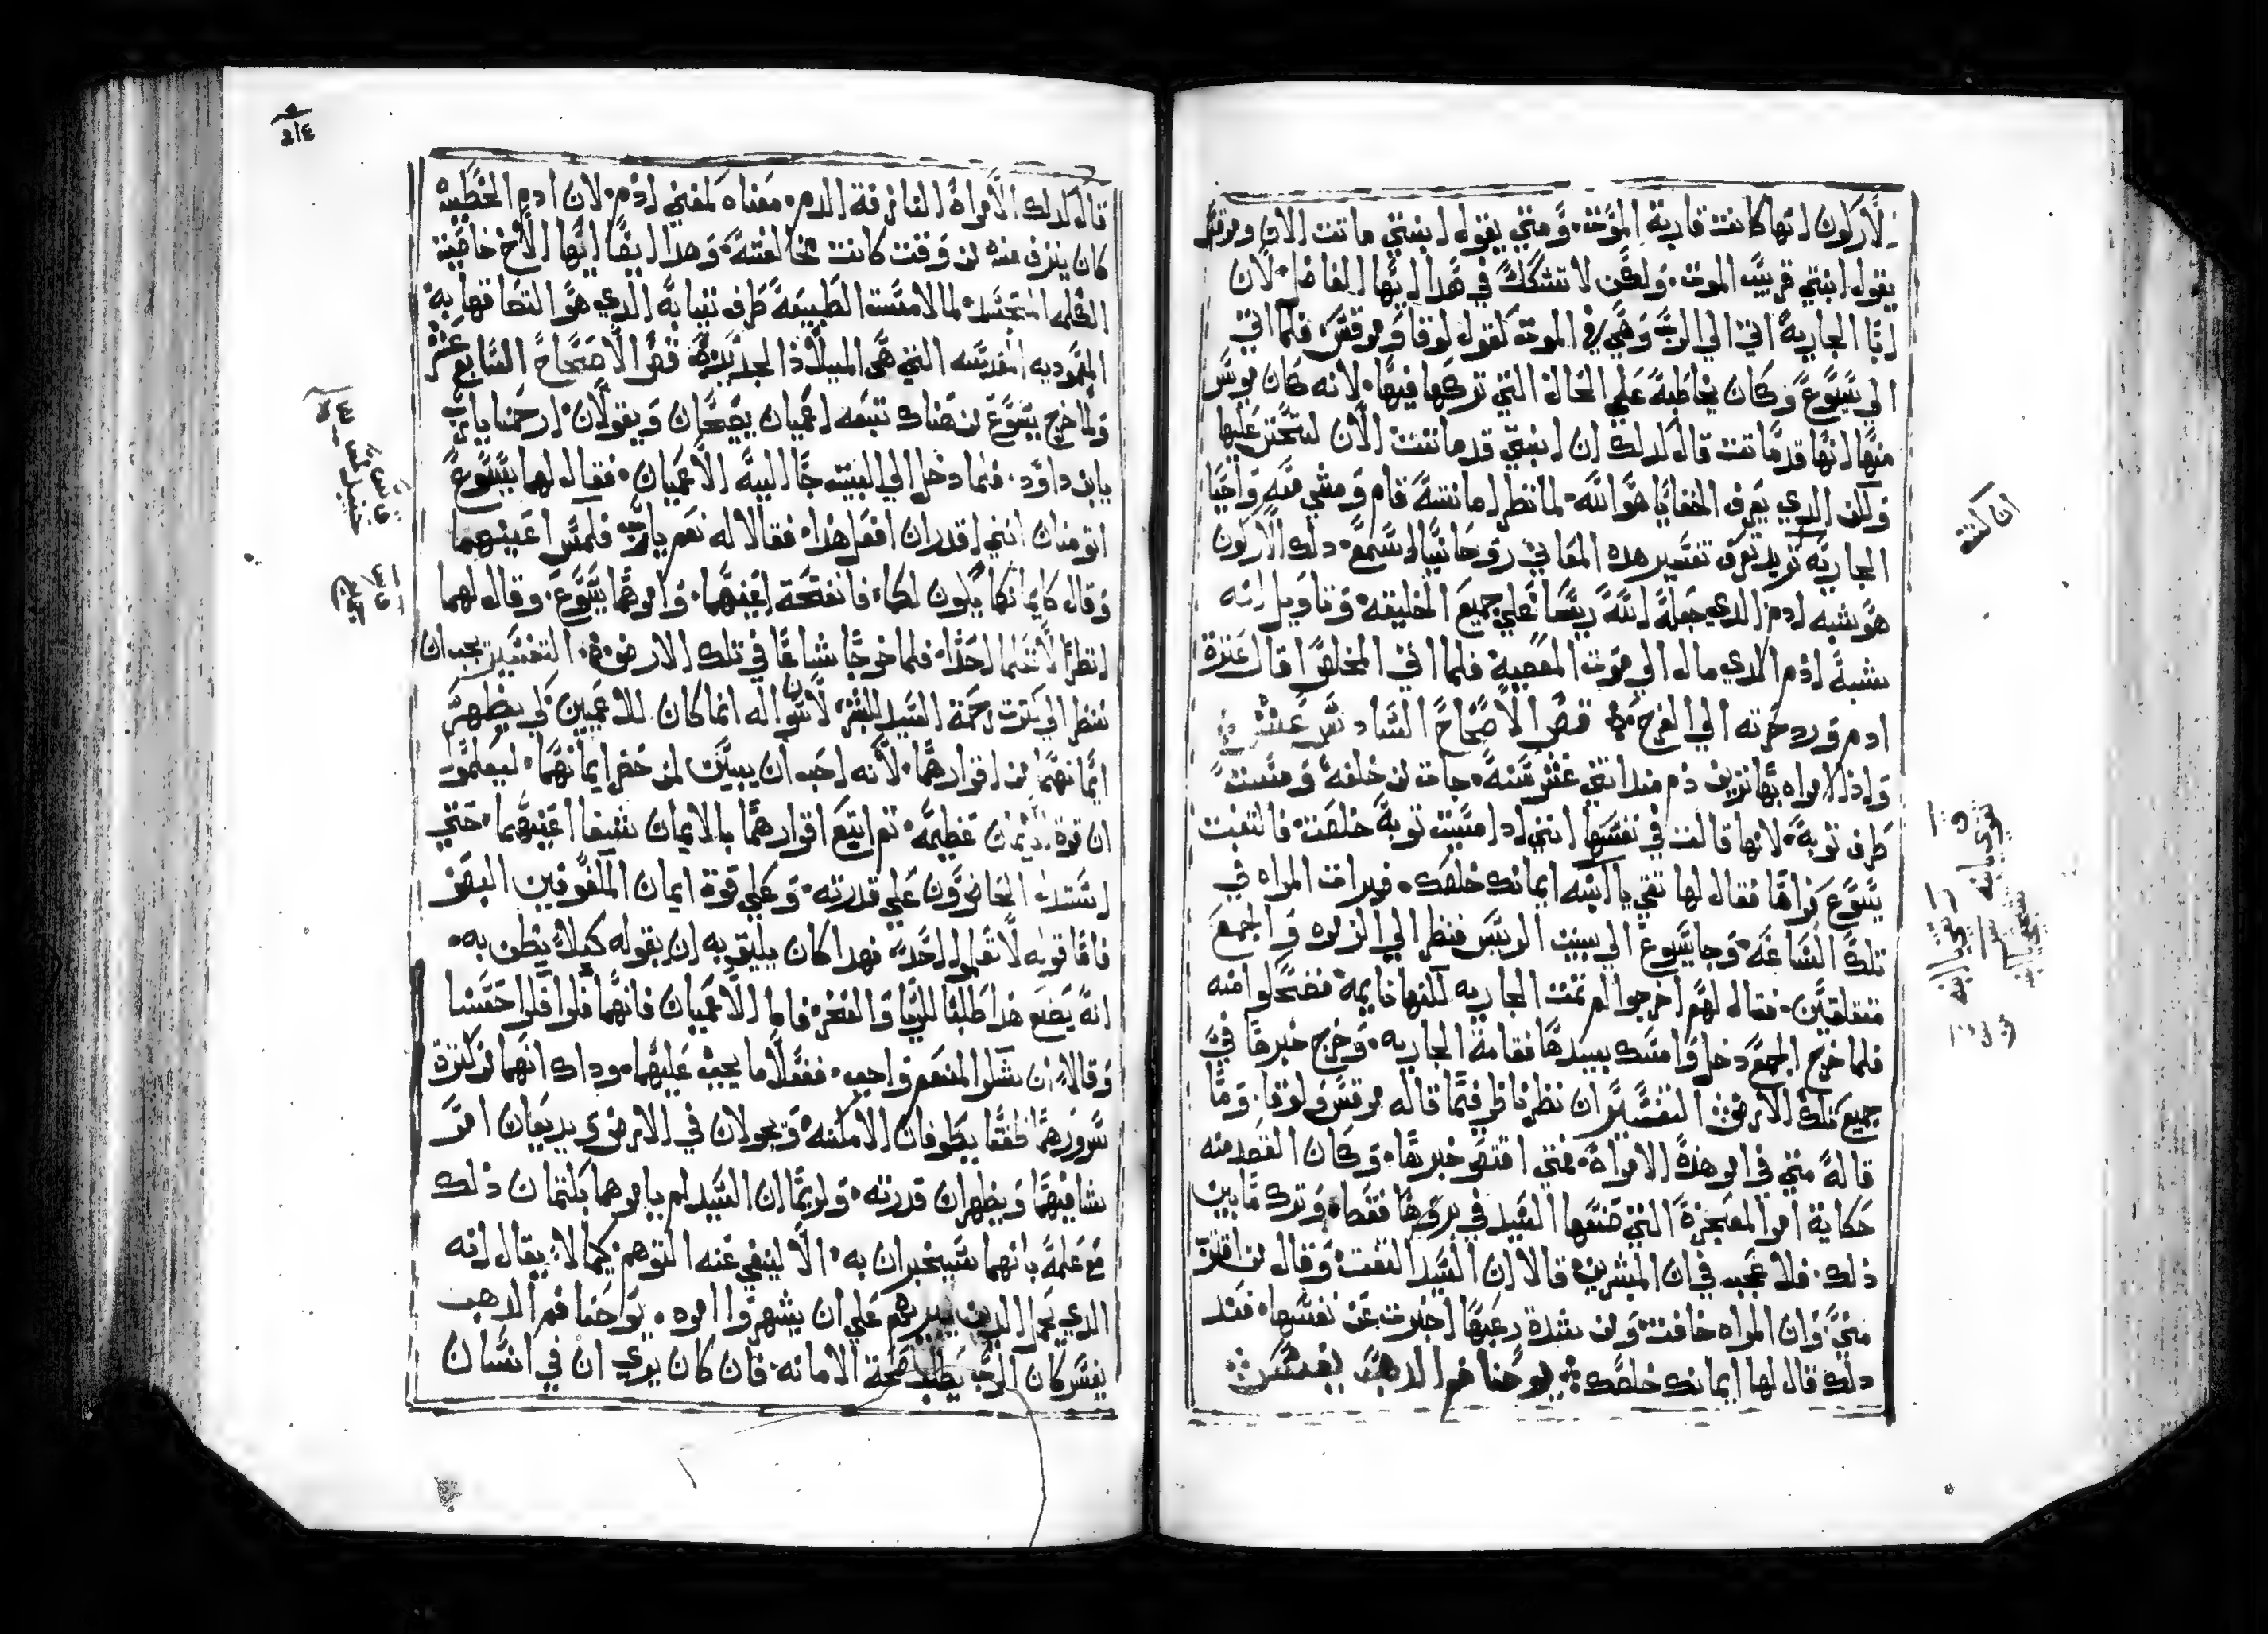 الاركون انها كانت قاربة الموت. ومتي يقول ابنتي ماتت الان ومرقس
يقول ابنتي قريبة الموت. ولكن لا تشكك في هدا ايها الفاضل. لان
ابا الجارية اتي الي الرب وهي في الموت كقول لوقا ومرقس. فلما اتي
الي يسوع وكان يخاطبة علي الحال التي تركها فيها. لانه كان يويس
منها انها قد ماتت قال لدلك ان ابنتي قد ماتت الان لتتحنن عليها
ولكن الدي يعرف الخفايا هو الله. لما نظر امانته قام ومشي معه واحيا
الجاريه تريد تعرف تفسير هده المعاني روحانيا اسمع. دلك الاركون
هو شبه ادم الدي جعلة الله ريسا علي جميع الخليقه. وتاويل انه
شبة ادم الدي مال الي موت المعصية فلما اتي المخلص اقال عترة
ادم ورد حزنه الي الفرح. فص الاصحاح السادس عشر
واذا امراه بها نزيف دم مند اتني عشر سنة. جات من خلفة ومست
طرف توبة. لانها قالت في نفسها انني ادا مسيت توبة خلصت. فالتفت
يسوع فراها فقال لها تقي يا ابنه ايمانك خلصك. فبرات المراه في
تلك الساعه. وجا يسوع الي بيت الريس فنظر الي الزمره والجمع
متقلقين. فقال لهم اخرجوا لم تمت الجاريه لكنها نايمة فضحكوا منه
فلما خرج الجمع دخل وامسك بيدها فقامة الجاريه. وخرج خبرها في
جميع تلك الارض التفسير ان نظر ناظر فيما قاله مرقس ولوقا. وما
قالة متي في امر هذة الامراة. فمتي اقتص خبرها. وكان القصد منه
حكاية امر المعجزة التي صنعها السيد في بروها فقط. وترك ما بين
ذلك. فلا عجب في ان المبشرين قالا ان السيد التفت وقال من اقترب
مني. وان المراه خافت ومن شدة رعبها اخبرت عن نفسها. فعند
دلك قال لها ايمانك خلصك. يوحنا فم الدهب يفسر
ان كنت
ثقي يا ابنة
قال كدلك الامراة النازفة الدم. معناه كمعني ادم. لان ادم الخطية
كان ينزف منه من وقت كانت مخالفته. وهدا ايضا ايها الاخ خاصية
الكلمه المتجسد. لما لامست الطبيعة طرف تيابه الدي هو التصاقها به
المعموديه المقدسه التي هي الميلاد الجديد. فص الاصحاح السابع عشر
ولما خرج يسوع من هناك تبعه اعميان يصيحان ويقولان. ارحمنا يارب
يابن داود. فلما دخل الي البيت جا اليه الاعميان. فقال لهما يسوع
اتومنان انني اقدر ان افعل هذا. فقالا له نعم يارب فلمس اعينهما
وقال كايمانكما يكون لكما. فانفتحة اعينهما. وامرهما يسوع. وقال لهما
انظرا لا تعلما احدا. فلما خرجا شاعا في تلك الارض. التفسير يجب ان
ننظر الي كترت رحمة السيد للبشر لان سواله انما كان للاعميين لكي يظهر
ايمانهما من اقوارهما. لانه احب ان يبين لمن حضر ايمانهما. ليعلموا
ان قوة الايمان عظيمة. تم اتبع اقوارهما بالايمان بشفا اعينهما. حتي
استدل الحاضرون علي قدرته. وعلي قوة ايمان المكفوفين البصر
فاما قوله لا تقولا لاحد. فهدا كان يليق به ان يقوله كيلا يظن به.
انه يصنع هدا طلبا للريا والفخر. فاما الاعميان فانهما
وقالا ان شكر المنعم واجب. ففعلا ما يجب عليهما. وداك انهما من كترة
سرورهما طفقا يطوفان الامكنة ويجولان في الارض ويديعان امر
شافيهما ويظهران قدرته. ولربما ان السيد لم يامرهما بكتمان ذلك
مع علمة بانهما سيخبران به. الا لينفي عنه التوهم. كيما لا يقال انه
الدي يحمل الدين يبريهم علي ان يشهروا امره. يوحنا فم الدهب
يفسر كان الرب يطلب صحة الامانه. فان كان يري ان في انسان